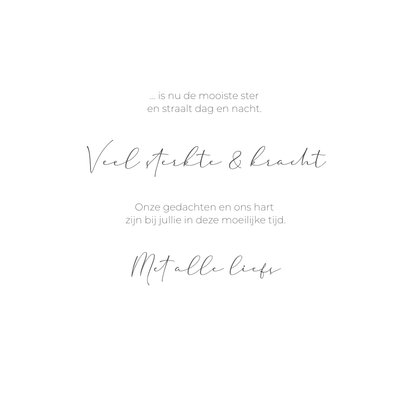 ... is nu de mooiste ster
en straalt dag en nacht.
Veel sterkte & kracht
Onze gedachten en ons hart
zijn bij jullie in deze moeilijke tijd.
Met alle liefs